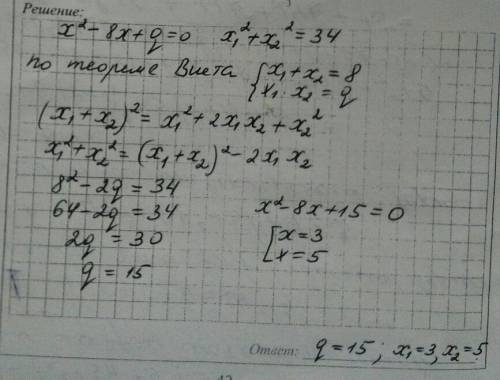 Решение:
x² - 8x + q = 0   x₁² + x₂² = 34
по теореме Виета { x₁ + x₂ = 8
x₁ · x₂ = q
(x₁ + x₂)² = x₁² + 2x₁x₂ + x₂²
x₁² + x₂² = (x₁ + x₂)² - 2x₁x₂
8² - 2q = 34
64 - 2q = 34   x² - 8x + 15 = 0
2q = 30   [ x = 3
x = 5
q = 15
Ответ: q = 15; x₁ = 3, x₂ = 5